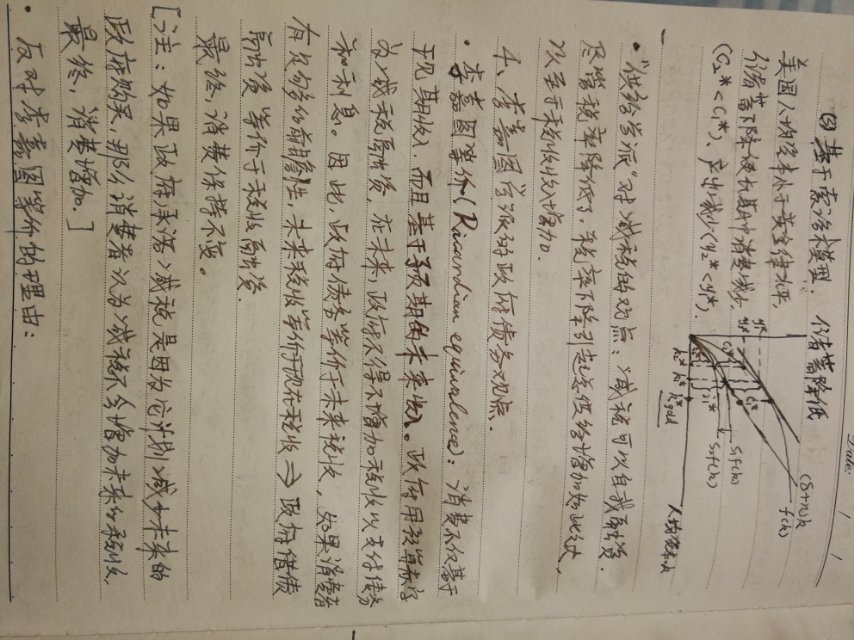 Date: / /
(4) 基于索洛模型. 储蓄降低
美国人均资本小于黄金律水平,
储蓄下降使长期中消费减少
(C₂* < C₁*)、产出减少(y₂* < y₁*).
(δ+n)k
f(k)
S₁f(k)
S₂f(k)
人均资本k
k₂* k₁* k*gold
• “供给学派”对减税的观点: 减税可以自我融资.
尽管税率降低了, 税率下降引起总供给增加如此之大,
以至于税收收入增加.
4、李嘉图学派的政府债务观点.
• 李嘉图等价(Ricardian equivalence): 消费不仅基于
现期收入, 而且基于预期的未来收入。政府用预算赤字
为减税融资, 在未来, 政府不得不增加税收以支付债务
和利息。因此, 政府债务等价于未来税收, 如果消费者
有足够的前瞻性, 未来税收等价于现在税收 ⇒ 政府借债
融资等价于税收融资.
最终, 消费保持不变。
[注: 如果政府承诺减税是因为它计划减少未来的
政府购买, 那么消费者认为减税不会增加未来的税收,
最终, 消费增加.]
• 反对李嘉图等价的理由: